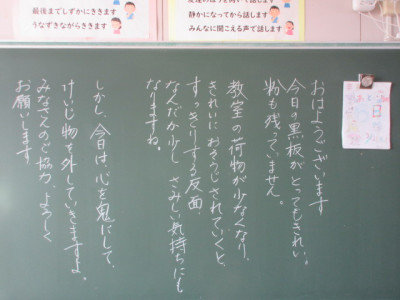 最後までしずかにききます
うなずきながらききます
静かになってから話します
みんなに聞こえる声で話します
おはようございます
今日の黒板がとってもきれい。
粉も残っていません。
教室の荷物が少なくなり、
きれいにおそうじされていくと、
すっきりする反面、
なんだか少し、さみしい気持ちにも
なりますね。
しかし、今日は、心を鬼にして、
けいじ物を外していきますよ。
みなさんのご協力、よろしく
お願いします。